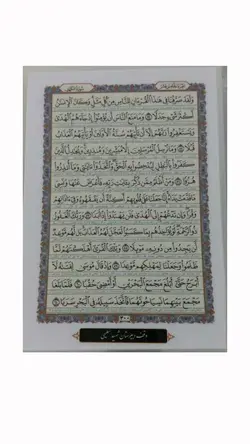 وَلَقَدْ صَرَّفْنَا فِي هَٰذَا الْقُرْءَانِ لِلنَّاسِ مِن كُلِّ مَثَلٍ وَكَانَ الْإِنسَانُ
أَكْثَرَ شَيْءٍ جَدَلًا ﴿٥٤﴾ وَمَا مَنَعَ النَّاسَ أَن يُؤْمِنُوا إِذْ جَاءَهُمُ الْهُدَىٰ
وَيَسْتَغْفِرُوا رَبَّهُمْ إِلَّا أَن تَأْتِيَهُمْ سُنَّةُ الْأَوَّلِينَ أَوْ يَأْتِيَهُمُ الْعَذَابُ
قُبُلًا ﴿٥٥﴾ وَمَا نُرْسِلُ الْمُرْسَلِينَ إِلَّا مُبَشِّرِينَ وَمُنذِرِينَ وَيُجَادِلُ الَّذِينَ
كَفَرُوا بِالْبَاطِلِ لِيُدْحِضُوا بِهِ الْحَقَّ وَاتَّخَذُوا ءَايَاتِي وَمَا أُنذِرُوا
هُزُوًا ﴿٥٦﴾ وَمَنْ أَظْلَمُ مِمَّن ذُكِّرَ بِآيَاتِ رَبِّهِ فَأَعْرَضَ عَنْهَا وَنَسِيَ مَا
قَدَّمَتْ يَدَاهُ إِنَّا جَعَلْنَا عَلَىٰ قُلُوبِهِمْ أَكِنَّةً أَن يَفْقَهُوهُ وَفِي ءَاذَانِهِمْ
وَقْرًا وَإِن تَدْعُهُمْ إِلَى الْهُدَىٰ فَلَن يَهْتَدُوا إِذًا أَبَدًا ﴿٥٧﴾ وَرَبُّكَ الْغَفُورُ
ذُو الرَّحْمَةِ لَوْ يُؤَاخِذُهُم بِمَا كَسَبُوا لَعَجَّلَ لَهُمُ الْعَذَابَ بَل لَّهُم مَّوْعِدٌ
لَّن يَجِدُوا مِن دُونِهِ مَوْئِلًا ﴿٥٨﴾ وَتِلْكَ الْقُرَىٰ أَهْلَكْنَاهُمْ لَمَّا
ظَلَمُوا وَجَعَلْنَا لِمَهْلِكِهِم مَّوْعِدًا ﴿٥٩﴾ وَإِذْ قَالَ مُوسَىٰ لِفَتَاهُ لَا
أَبْرَحُ حَتَّىٰ أَبْلُغَ مَجْمَعَ الْبَحْرَيْنِ أَوْ أَمْضِيَ حُقُبًا ﴿٦٠﴾ فَلَمَّا بَلَغَا
مَجْمَعَ بَيْنِهِمَا نَسِيَا حُوتَهُمَا فَاتَّخَذَ سَبِيلَهُ فِي الْبَحْرِ سَرَبًا ﴿٦١﴾
٣٠٠